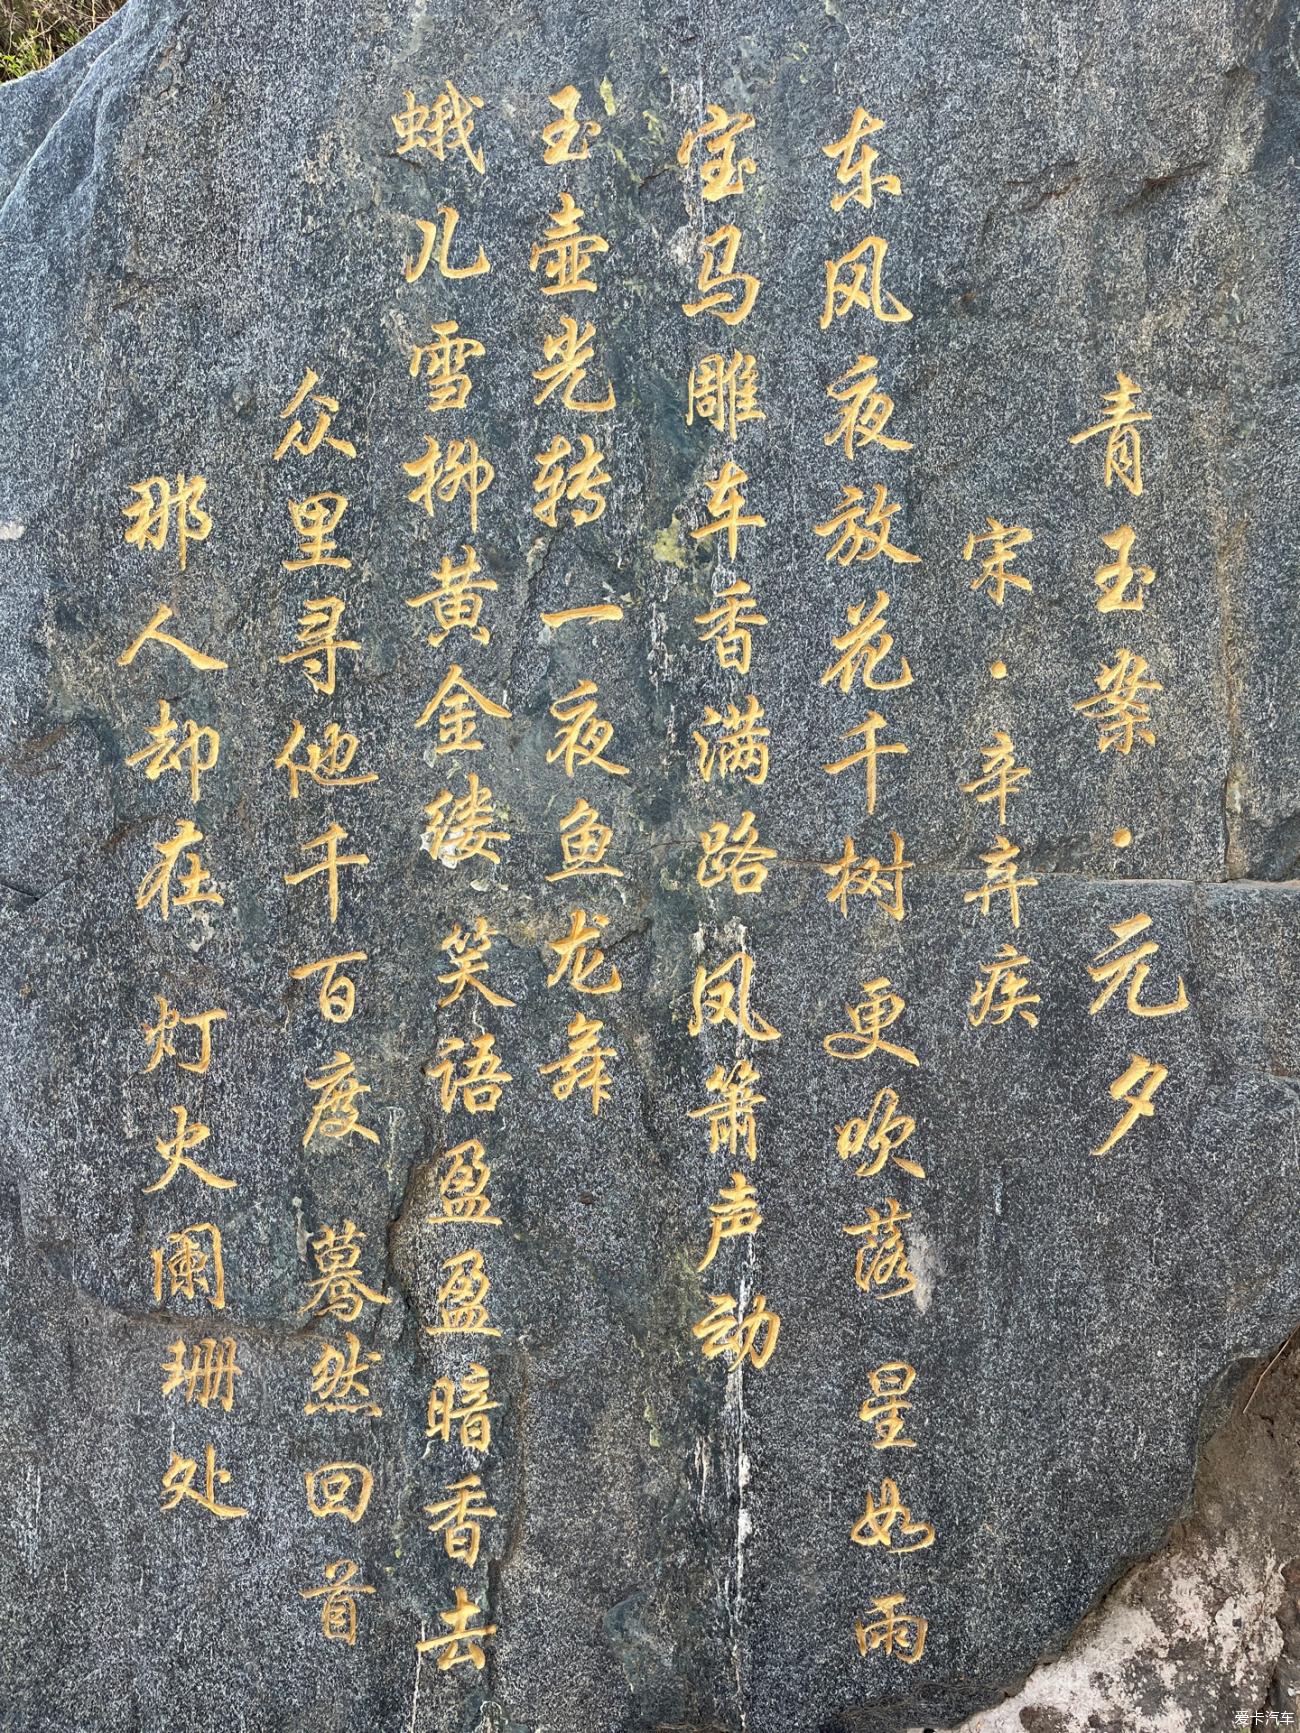 青玉案·元夕
宋·辛弃疾
东风夜放花千树 更吹落 星如雨
宝马雕车香满路 凤箫声动
玉壶光转 一夜鱼龙舞
蛾儿雪柳黄金缕 笑语盈盈暗香去
众里寻他千百度 蓦然回首
那人却在 灯火阑珊处
爱卡汽车